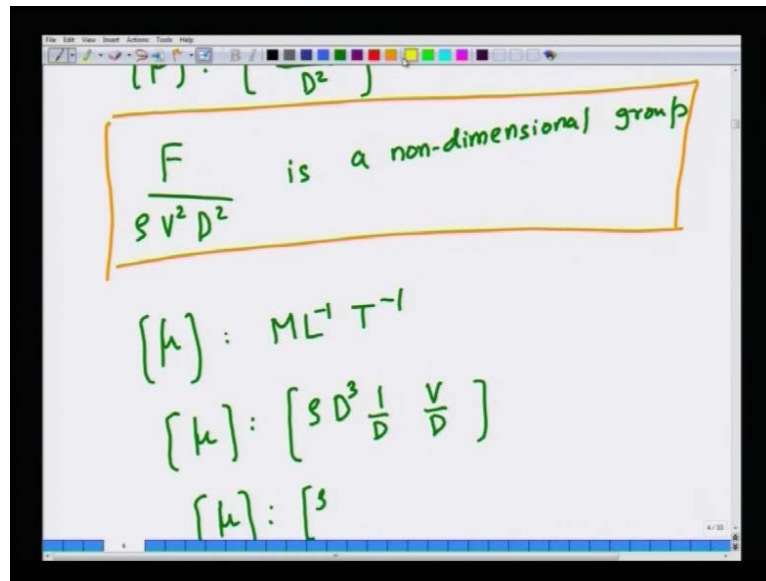 File Edit View Insert Actions Tools Help
[F] : [ D² ]
F / ρ V² D² is a non-dimensional group
[μ] : M L⁻¹ T⁻¹
[μ] : [ρ D³ 1/D V/D]
[μ] : [ρ
4/33
4